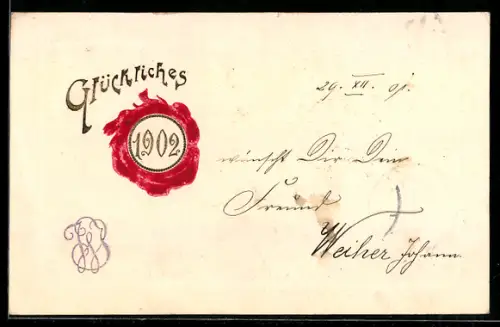 Glückliches
1902
29. XII. 01.
wünscht Dir Dein
Freund
Weiher Johann